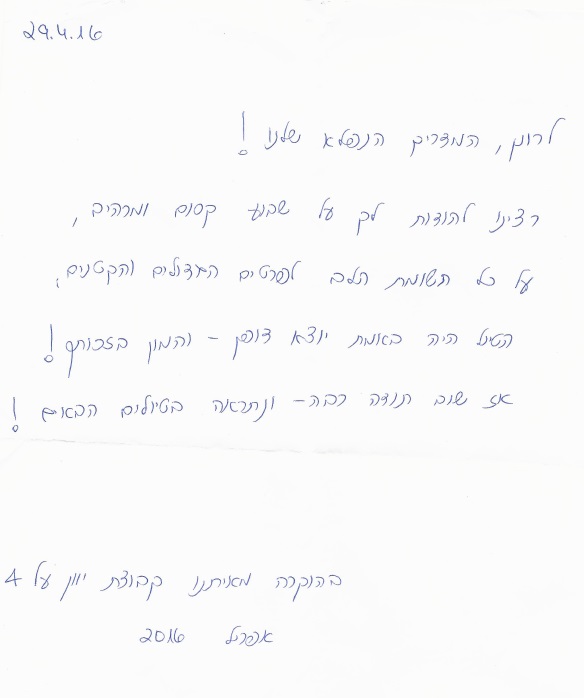 29.4.16
לרונן, המדריך הנפלא שלנו!
רצינו להודות לך על שבוע קסום ומרהיב,
על כל תשומת הלב לפרטים הגדולים והקטנים,
הטיול היה באמת יוצא דופן - והמון בזכותך!
אז שוב תודה רבה - ונתראה בטיולים הבאים!
בהוקרה מאיתנו קבוצת יוון על 4
אפריל 2016